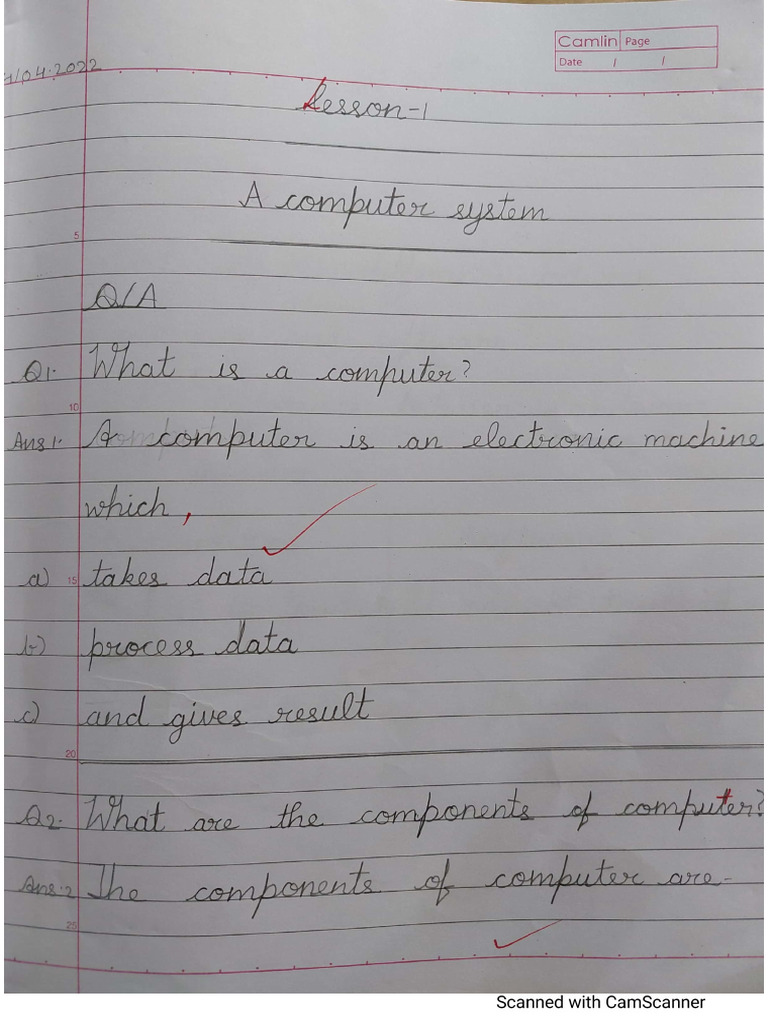 Camlin Page
Date / /
/04.2022
Lesson-1
A computer system
5
Q/A
Q1. What is a computer?
10
Ans 1. A computer is an electronic machine
which,
a) 15 takes data
b) process data
c) and gives result
20
Q2. What are the components of computer?
Ans.2 The components of computer are-
25
Scanned with CamScanner